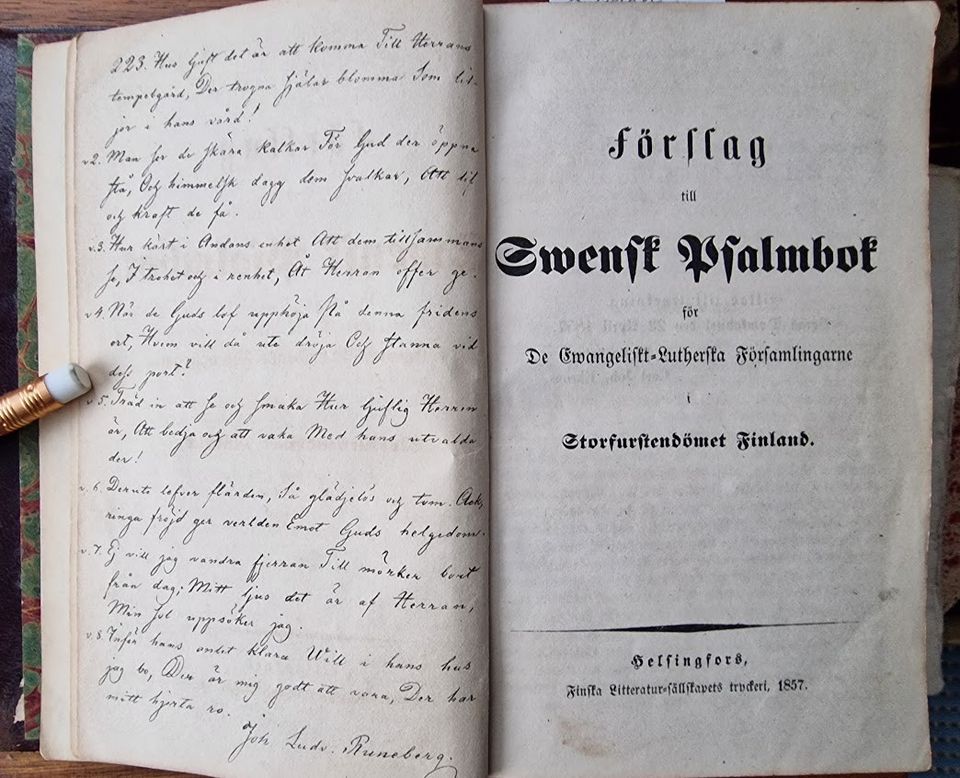 223. Hus ljuft det är att komma Till Herrans
tempelgård, Der trogna själar blomma Som lil-
jor i hans vård!
v2. Man ser de skära kalkar För Gud der öppna
stå, Och himmelsk dagg dem svalkar, Att lif
och kraft de få.
v.3. Hur kärt i Andans enhet Att dem tillsammans
se, I trohet och i renhet, Åt Herran offer ge.
v4. När de Guds lof upphöja På denna fridens
ort, Hvem vill då ute dröja Och stanna vid
dess port?
v.5. Träd in att se och smaka Hur ljuflig Herren
är, Att bedja och att vaka Med hans utvalda
der!
v.6. Derute lefver flärden, Så glädjelös och tom. Ack,
ringa fröjd ger verlden Emot Guds helgedom.
v.7. Ej vill jag vandra fjerran Till mörker bort
från dag; Mitt ljus det är af Herran,
Min Sol uppsöker jag.
v.8. Inför hans anlet klara Will i hans hus
jag bo, Der är mig godt att vara, Der har
mitt hjerta ro.
Joh Ludv. Runeberg.
Förslag
till
Swensk Psalmbok
för
De Ewangeliskt-Lutherska Församlingarne
i
Storfurstendömet Finland.
Helsingfors,
Finska Litteratur-sällskapets tryckeri, 1857.